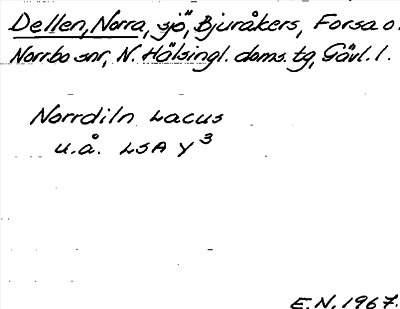 Dellen, Norra, sjö, Bjuråkers, Forsa o.
Norrbo snr, N. Hälsingl. doms. tg, Gävl. l.
Norrdiln Lacus
u.å. LSA Y 3
E.N. 1967.